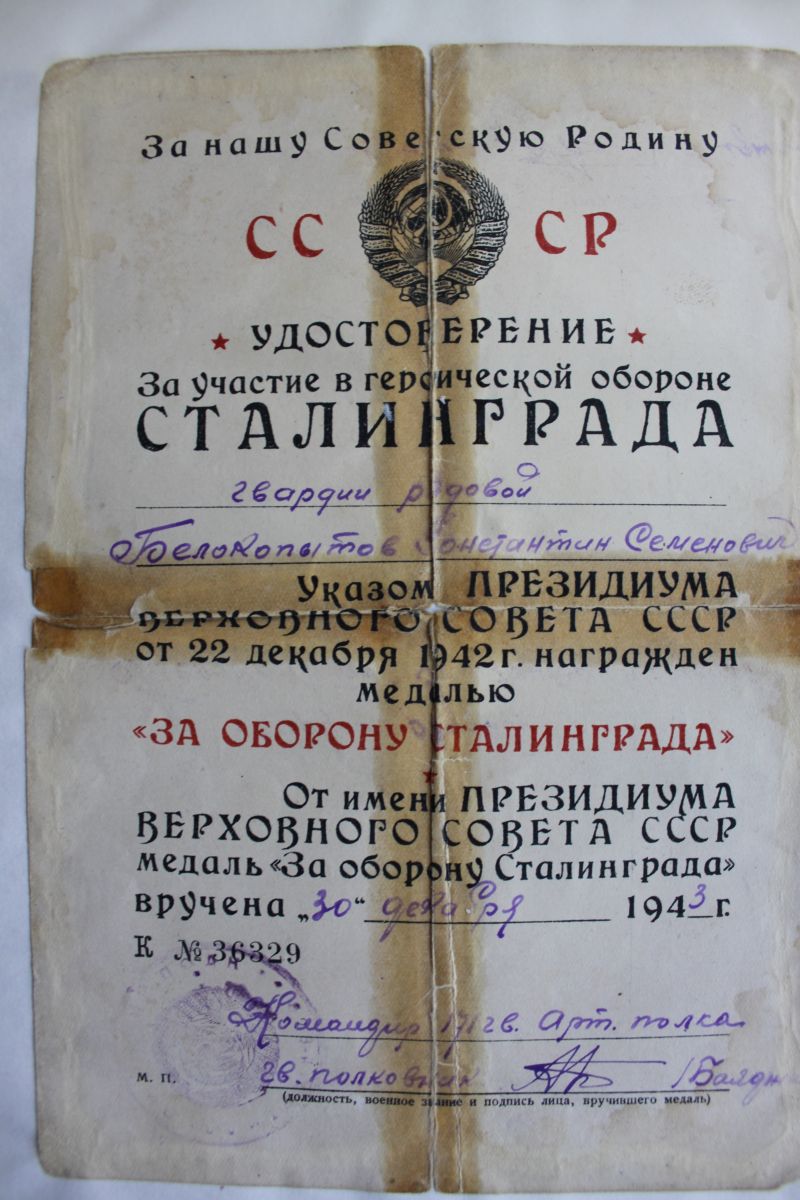 За нашу Советскую Родину
СССР
УДОСТОВЕРЕНИЕ
За участие в героической обороне
СТАЛИНГРАДА
гвардии рядовой
Белокопытов Константин Семенович
Указом ПРЕЗИДИУМА
ВЕРХОВНОГО СОВЕТА СССР
от 22 декабря 1942 г. награжден
медалью
«ЗА ОБОРОНУ СТАЛИНГРАДА»
От имени ПРЕЗИДИУМА
ВЕРХОВНОГО СОВЕТА СССР
медаль «За оборону Сталинграда»
вручена „30“ декабря 1943 г.
К № 36329
Командир 171 гв. Арт. полка
м. п. гв. полковник
(должность, военное звание и подпись лица, вручившего медаль)